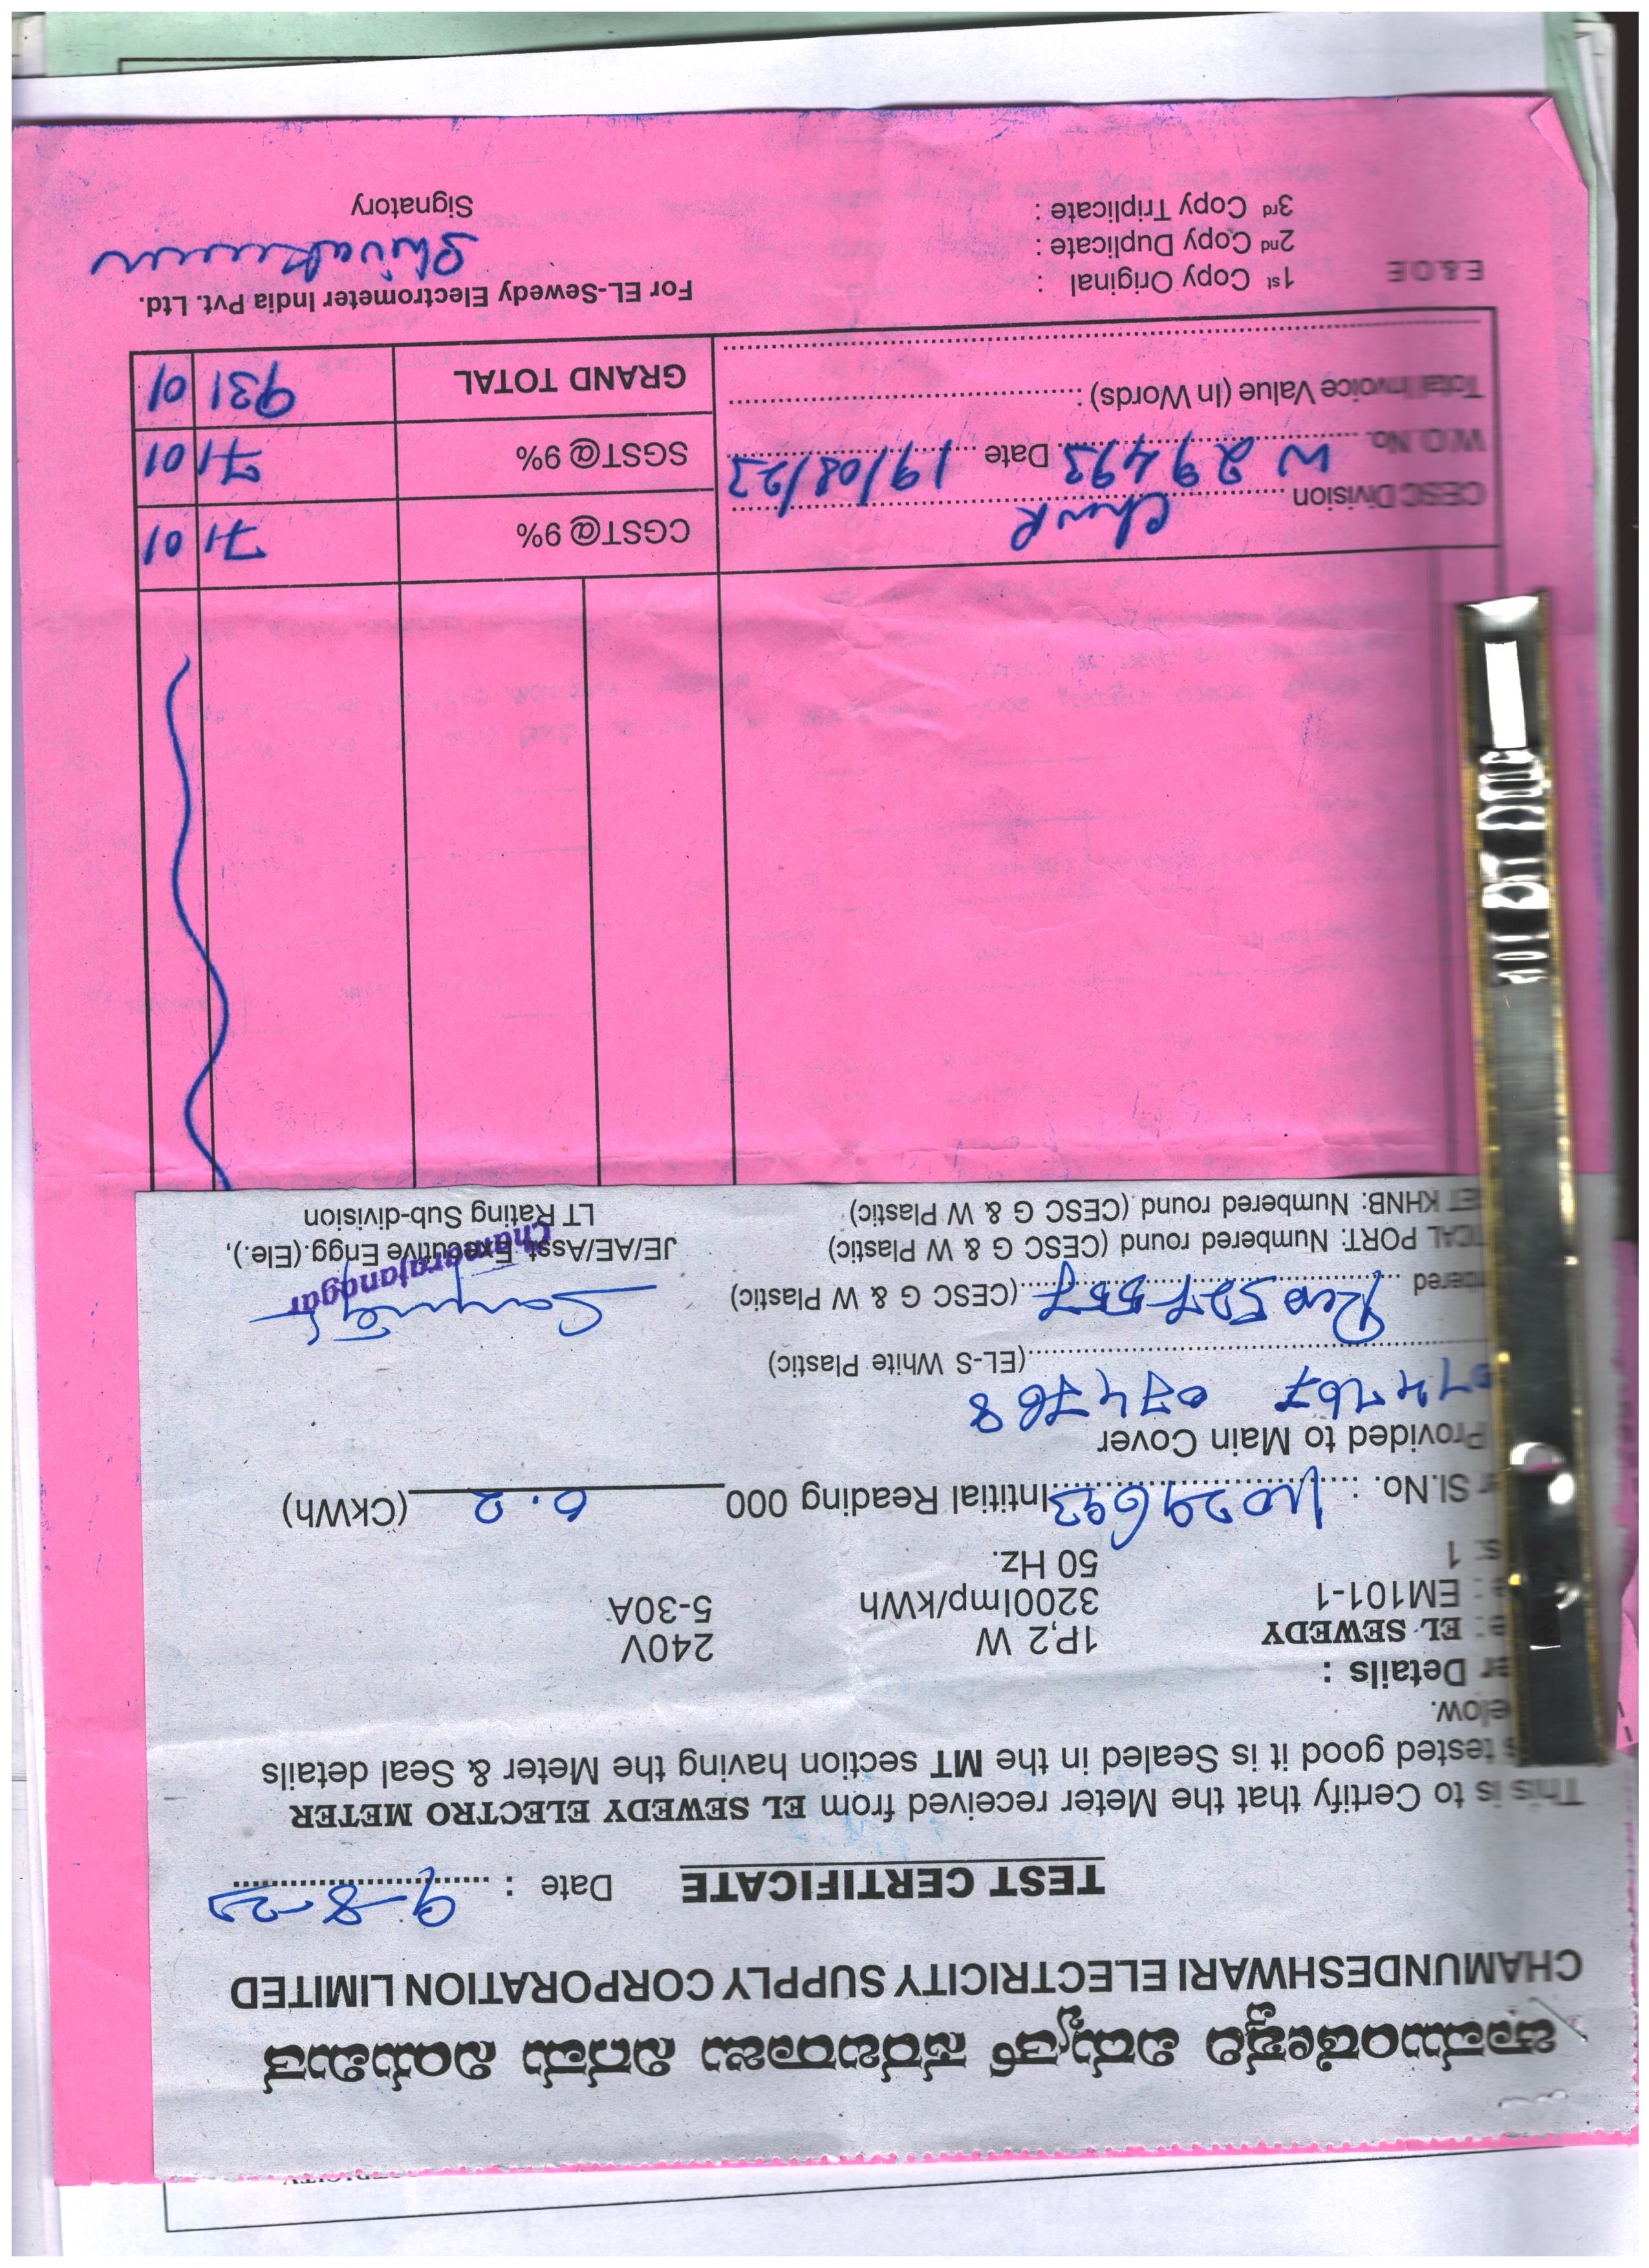 ಚಾಮುಂಡೇಶ್ವರಿ ವಿದ್ಯುತ್ ಸರಬರಾಜು ನಿಗಮ ನಿಯಮಿತ
CHAMUNDESHWARI ELECTRICITY SUPPLY CORPORATION LIMITED
TEST CERTIFICATE Date : 9-8-23
This is to Certify that the Meter received from EL SEWEDY ELECTRO METER
is tested good it is Sealed in the MT section having the Meter & Seal details
elow.
er Details :
e: EL SEWEDY 1P,2 W 240V
e : EM101-1 3200Imp/kWh 5-30A
s: 1 50 Hz.
r Sl.No. : 11029693 Intitial Reading 000 0.2 (CkWh)
Provided to Main Cover
074767 074768
(EL-S White Plastic)
bered Rev 527557 (CESC G & W Plastic)
TCAL PORT: Numbered round (CESC G & W Plastic) JE/AE/Asst. Executive Engg.(Ele.),
Chamarajanagar
ET KHNB: Numbered round (CESC G & W Plastic) LT Rating Sub-division
CESC Division CGST@ 9% 71 01
W.O. No. W 29493 Date 19/08/23 SGST@ 9% 71 01
Total Invoice Value (In Words) : GRAND TOTAL 931 01
E & O.E 1st Copy Original : For EL-Sewedy Electrometer India Pvt. Ltd.
2nd Copy Duplicate : Shivakumar
3rd Copy Triplicate : Signatory